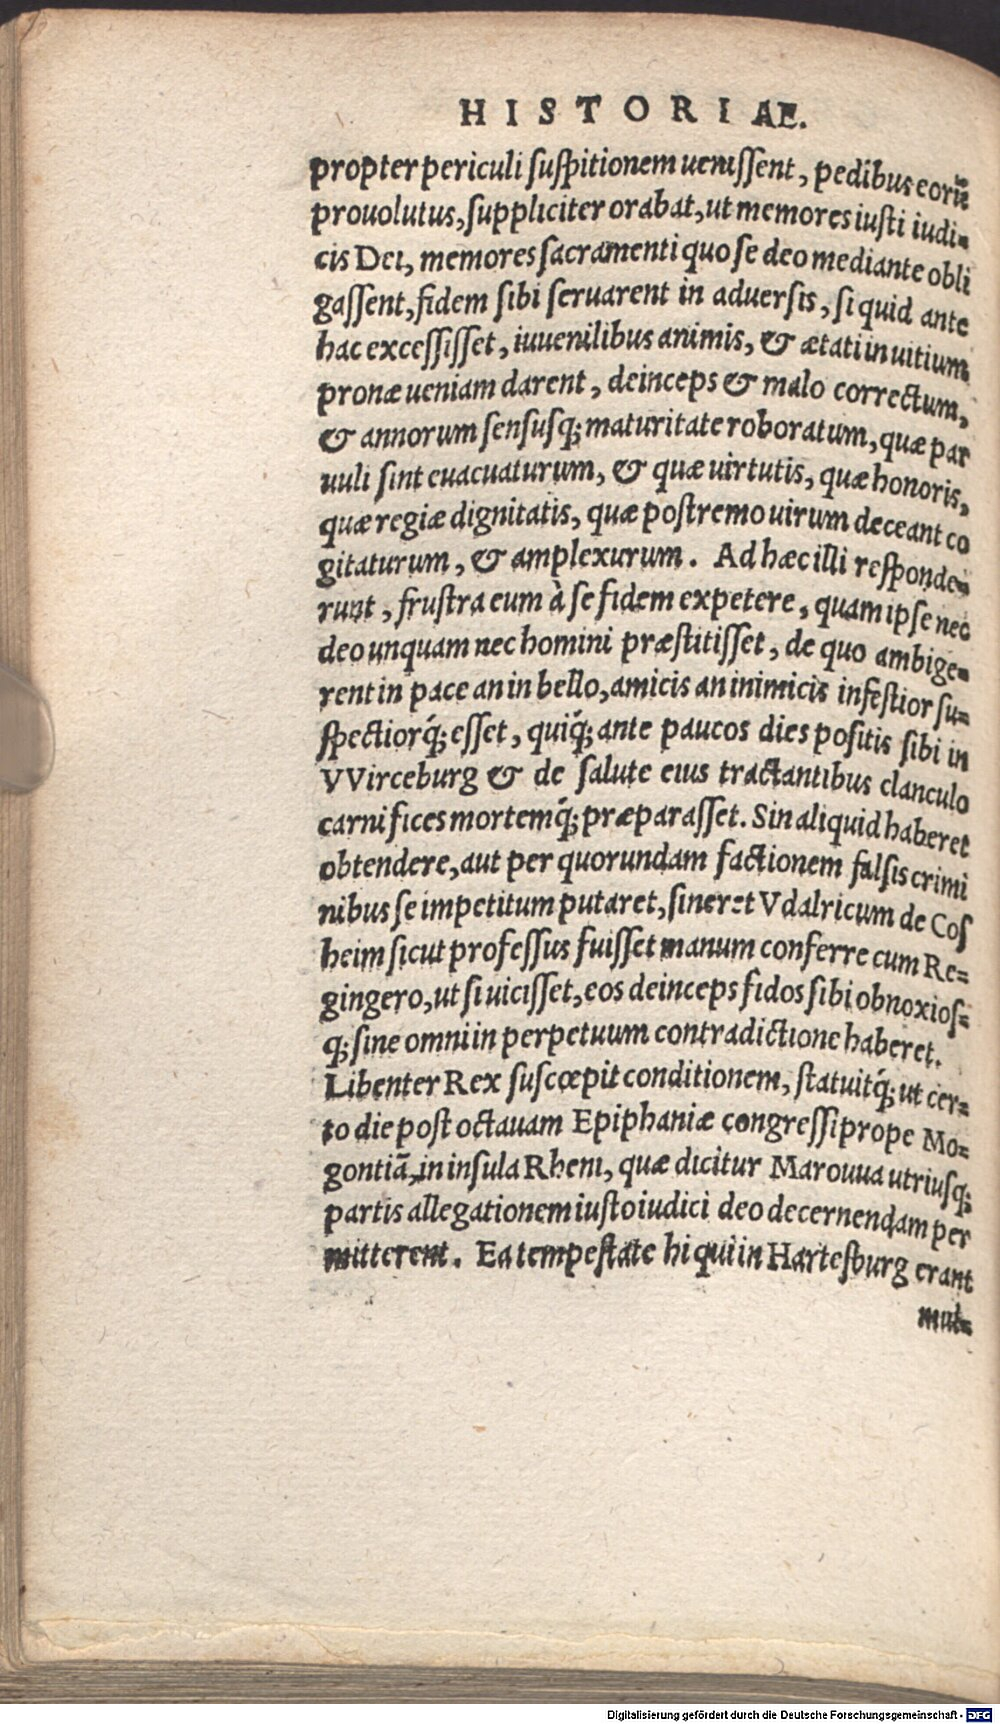 HISTORIAE.
propter periculi suspitionem uenissent, pedibus eorũ
prouolutus, suppliciter orabat, ut memores iusti iudi=
cis Dei, memores sacramenti quo se deo mediante obli
gassent, fidem sibi seruarent in aduersis, si quid ante
hac excessisset, iuuenilibus animis, & ætati in uitium
pronæ ueniam darent, deinceps & malo correctum,
& annorum sensusq; maturitate roboratum, quæ par
uuli sint euacuaturum, & quæ uirtutis, quæ honoris,
quæ regiæ dignitatis, quæ postremo uirum deceant co
gitaturum, & amplexurum. Ad hæc illi responde=
runt, frustra eum à se fidem expetere, quam ipse nec
deo unquam nec homini præstitisset, de quo ambige=
rent in pace an in bello, amicis an inimicis infestior su=
spectiorq́; esset, quiq́; ante paucos dies positis sibi in
VVirceburg & de salute eius tractantibus clanculo
carnifices mortemq́; præparasset. Sin aliquid haberet
obtendere, aut per quorundam factionem falsis crimi
nibus se impetitum putaret, sineret Vdalricum de Cos
heim sicut professus fuisset manum conferre cum Re=
gingero, ut si uicisset, eos deinceps fidos sibi obnoxios=
q; sine omni in perpetuum contradictione haberet.
Libenter Rex suscœpit conditionem, statuitq́; ut cer=
to die post octauam Epiphaniæ congressi prope Mo=
gontiã, in insula Rheni, quæ dicitur Marouua utriusq;
partis allegationem iusto iudici deo decernendam per
mitterent. Ea tempestate hi qui in Hartesburg erant
mul=
Digitalisierung gefördert durch die Deutsche Forschungsgemeinschaft - DFG